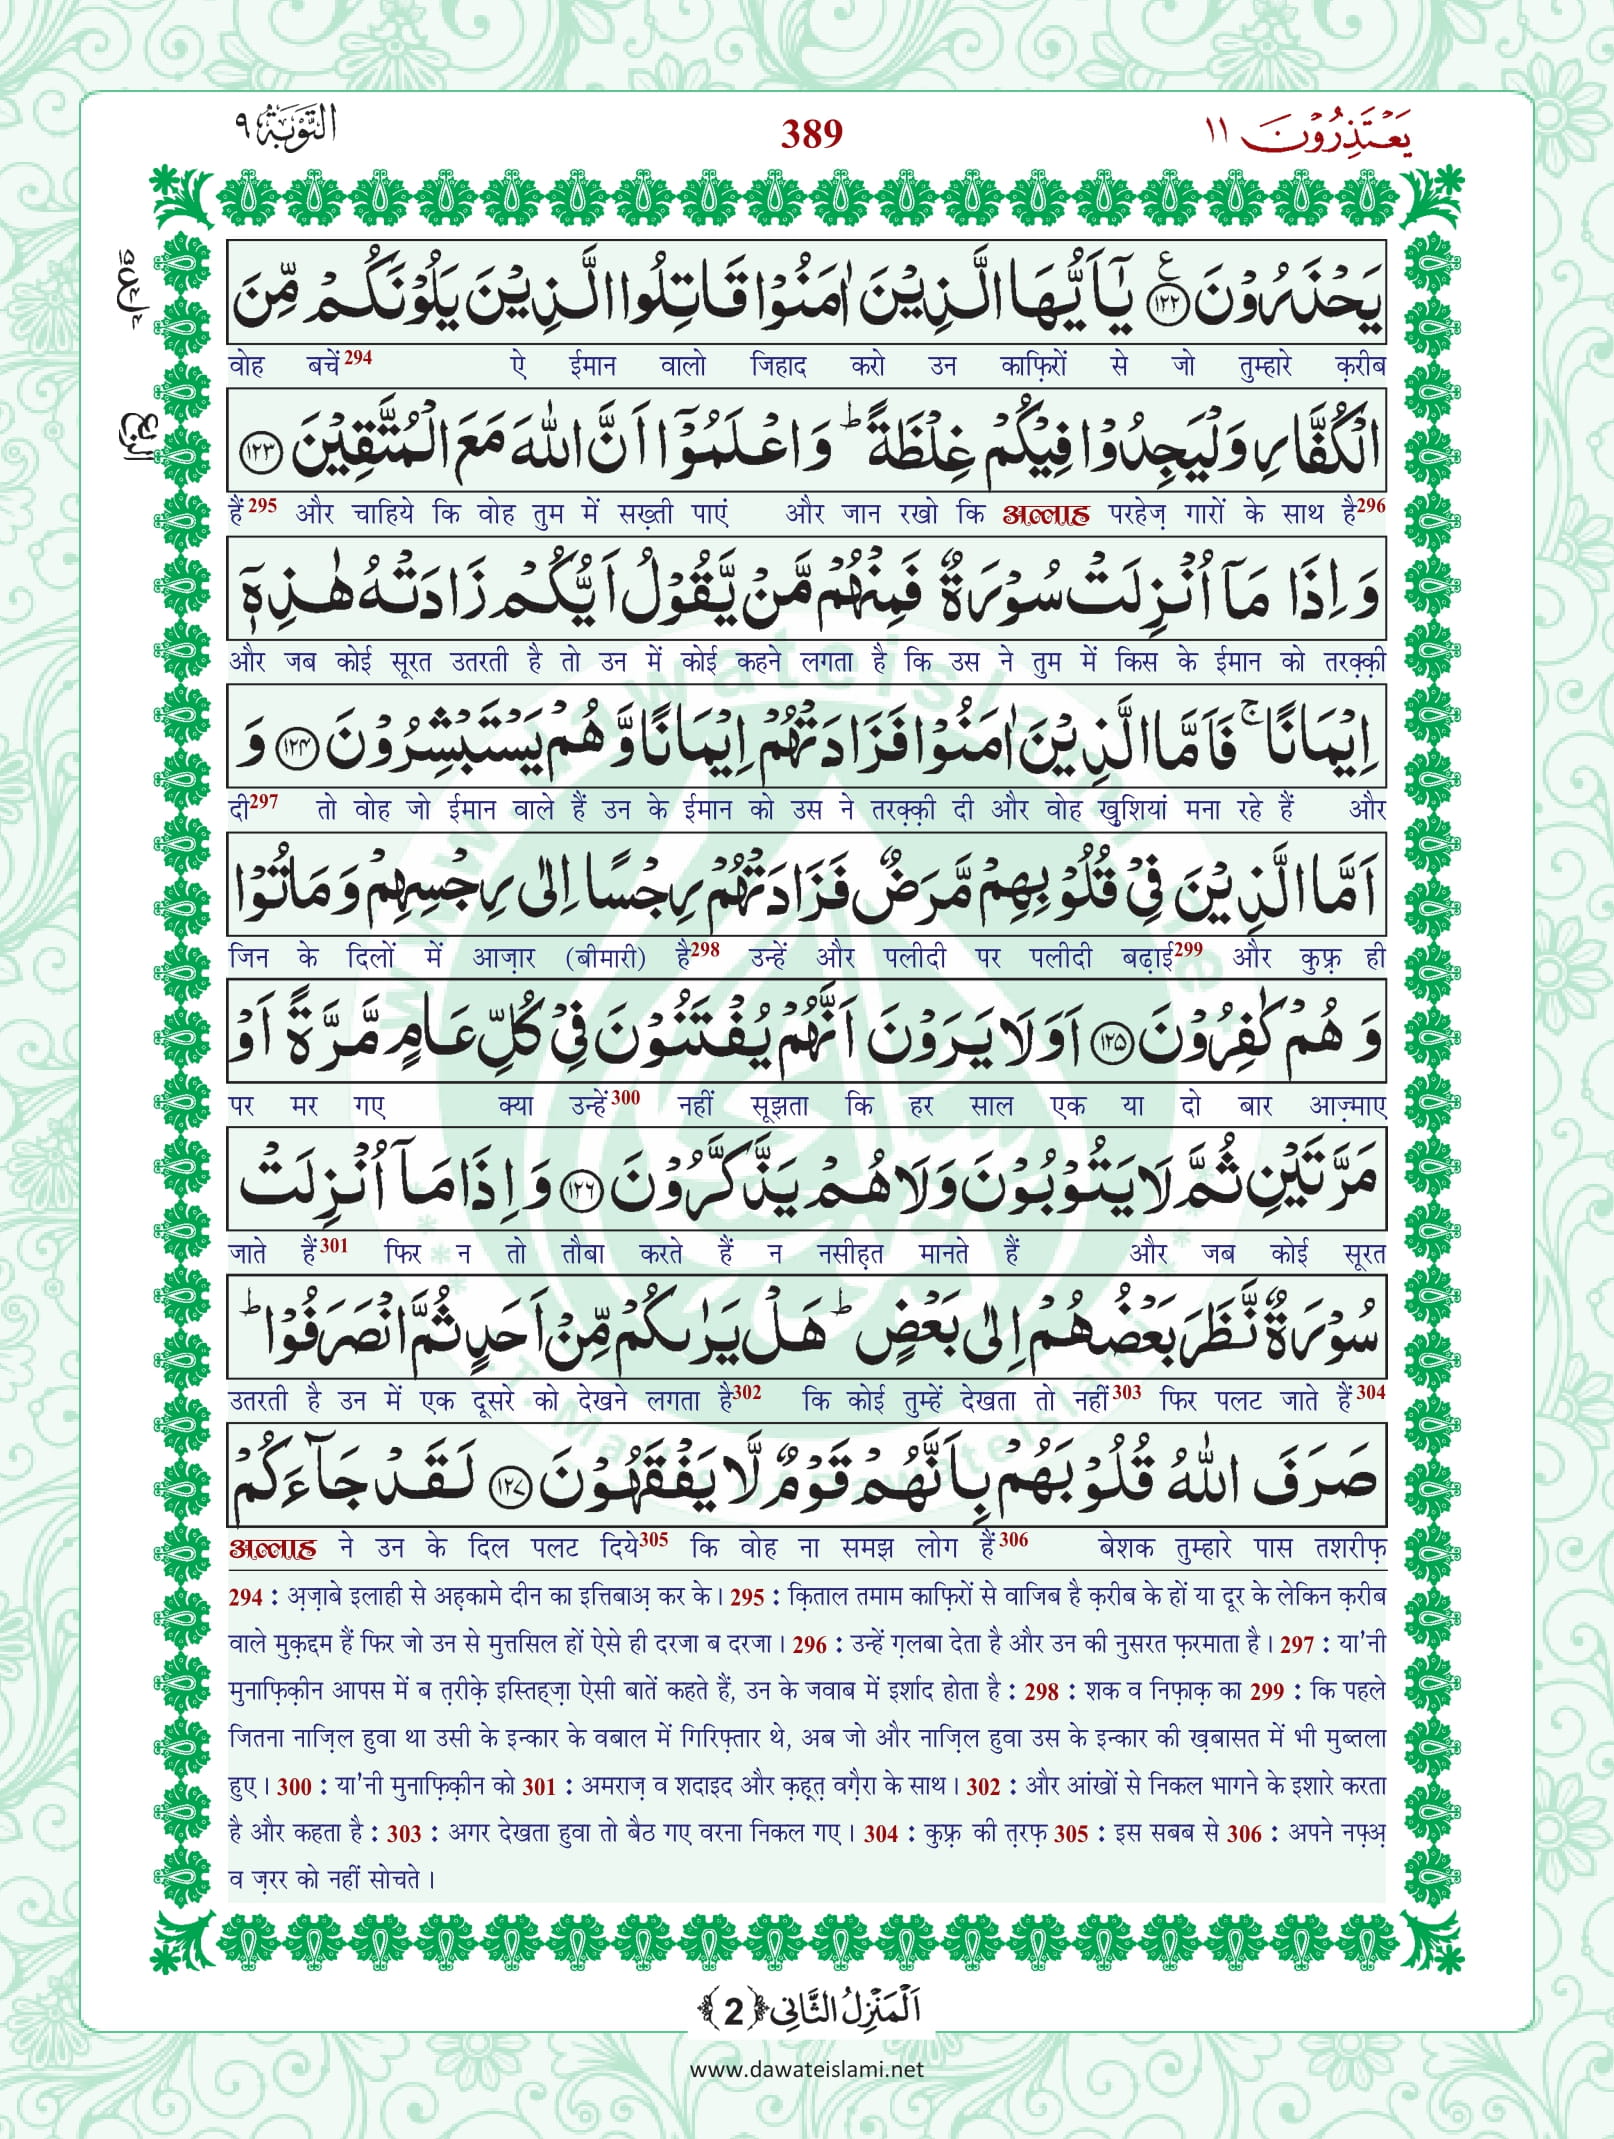 يَعْتَذِرُوْنَ ١١
389
التَّوْبَة ٩
يَحْذَرُوْنَ ﴿١٢٢﴾ۧ يٰۤاَيُّهَا الَّذِيْنَ اٰمَنُوْا قَاتِلُوا الَّذِيْنَ يَلُوْنَكُمْ مِّنَ
वोह बचें294 ऐ ईमान वालो जिहाद करो उन काफ़िरों से जो तुम्हारे क़रीब
الْكُفَّارِ وَلْيَجِدُوْا فِيْكُمْ غِلْظَةً ؕ وَاعْلَمُوْۤا اَنَّ اللّٰهَ مَعَ الْمُتَّقِيْنَ ﴿١٢٣﴾
हैं295 और चाहिये कि वोह तुम में सख़्ती पाएं और जान रखो कि अल्लाह परहेज़ गारों के साथ है296
وَاِذَا مَاۤ اُنْزِلَتْ سُوْرَةٌ فَمِنْهُمْ مَّنْ يَّقُوْلُ اَيُّكُمْ زَادَتْهُ هٰذِهٖۤ
और जब कोई सूरत उतरती है तो उन में कोई कहने लगता है कि उस ने तुम में किस के ईमान को तरक़्क़ी
اِيْمَانًا ۚ فَاَمَّا الَّذِيْنَ اٰمَنُوْا فَزَادَتْهُمْ اِيْمَانًا وَّهُمْ يَسْتَبْشِرُوْنَ ﴿١٢٤﴾ وَ
दी297 तो वोह जो ईमान वाले हैं उन के ईमान को उस ने तरक़्क़ी दी और वोह खुशियां मना रहे हैं और
اَمَّا الَّذِيْنَ فِيْ قُلُوْبِهِمْ مَّرَضٌ فَزَادَتْهُمْ رِجْسًا اِلٰى رِجْسِهِمْ وَمَاتُوْا
जिन के दिलों में आज़ार (बीमारी) है298 उन्हें और पलीदी पर पलीदी बढ़ाई299 और कुफ़्र ही
وَهُمْ كٰفِرُوْنَ ﴿١٢٥﴾ اَوَلَا يَرَوْنَ اَنَّهُمْ يُفْتَنُوْنَ فِيْ كُلِّ عَامٍ مَّرَّةً اَوْ
पर मर गए क्या उन्हें300 नहीं सूझता कि हर साल एक या दो बार आज़्माए
مَرَّتَيْنِ ثُمَّ لَا يَتُوْبُوْنَ وَلَا هُمْ يَذَّكَّرُوْنَ ﴿١٢٦﴾ وَاِذَا مَاۤ اُنْزِلَتْ
जाते हैं301 फिर न तो तौबा करते हैं न नसीह़त मानते हैं और जब कोई सूरत
سُوْرَةٌ نَّظَرَ بَعْضُهُمْ اِلٰى بَعْضٍ ؕ هَلْ يَرٰىكُمْ مِّنْ اَحَدٍ ثُمَّ انْصَرَفُوْا ؕ
उतरती है उन में एक दूसरे को देखने लगता है302 कि कोई तुम्हें देखता तो नहीं303 फिर पलट जाते हैं304
صَرَفَ اللّٰهُ قُلُوْبَهُمْ بِاَنَّهُمْ قَوْمٌ لَّا يَفْقَهُوْنَ ﴿١٢٧﴾ لَقَدْ جَآءَكُمْ
अल्लाह ने उन के दिल पलट दिये305 कि वोह ना समझ लोग हैं306 बेशक तुम्हारे पास तशरीफ़
294 : अ़ज़ाबे इलाही से अह़कामे दीन का इत्तिबाअ़ कर के। 295 : क़िताल तमाम काफ़िरों से वाजिब है क़रीब के हों या दूर के लेकिन क़रीब
वाले मुक़द्दम हैं फिर जो उन से मुत्तसिल हों ऐसे ही दरजा ब दरजा। 296 : उन्हें ग़लबा देता है और उन की नुसरत फ़रमाता है। 297 : या'नी
मुनाफ़िक़ीन आपस में ब त़रीक़े इस्तिह्ज़ा ऐसी बातें कहते हैं, उन के जवाब में इर्शाद होता है : 298 : शक व निफ़ाक़ का 299 : कि पहले
जितना नाज़िल हुवा था उसी के इन्कार के वबाल में गिरिफ़्तार थे, अब जो और नाज़िल हुवा उस के इन्कार की ख़बासत में भी मुब्तला
हुए। 300 : या'नी मुनाफ़िक़ीन को 301 : अमराज़ व शदाइद और क़ह़त़ वग़ैरा के साथ। 302 : और आंखों से निकल भागने के इशारे करता
है और कहता है : 303 : अगर देखता हुवा तो बैठ गए वरना निकल गए। 304 : कुफ़्र की त़रफ़ 305 : इस सबब से 306 : अपने नफ़्अ़
व ज़रर को नहीं सोचते।
اَلْمَنْزِلُ الثَّانِى ﴿2﴾
www.dawateislami.net